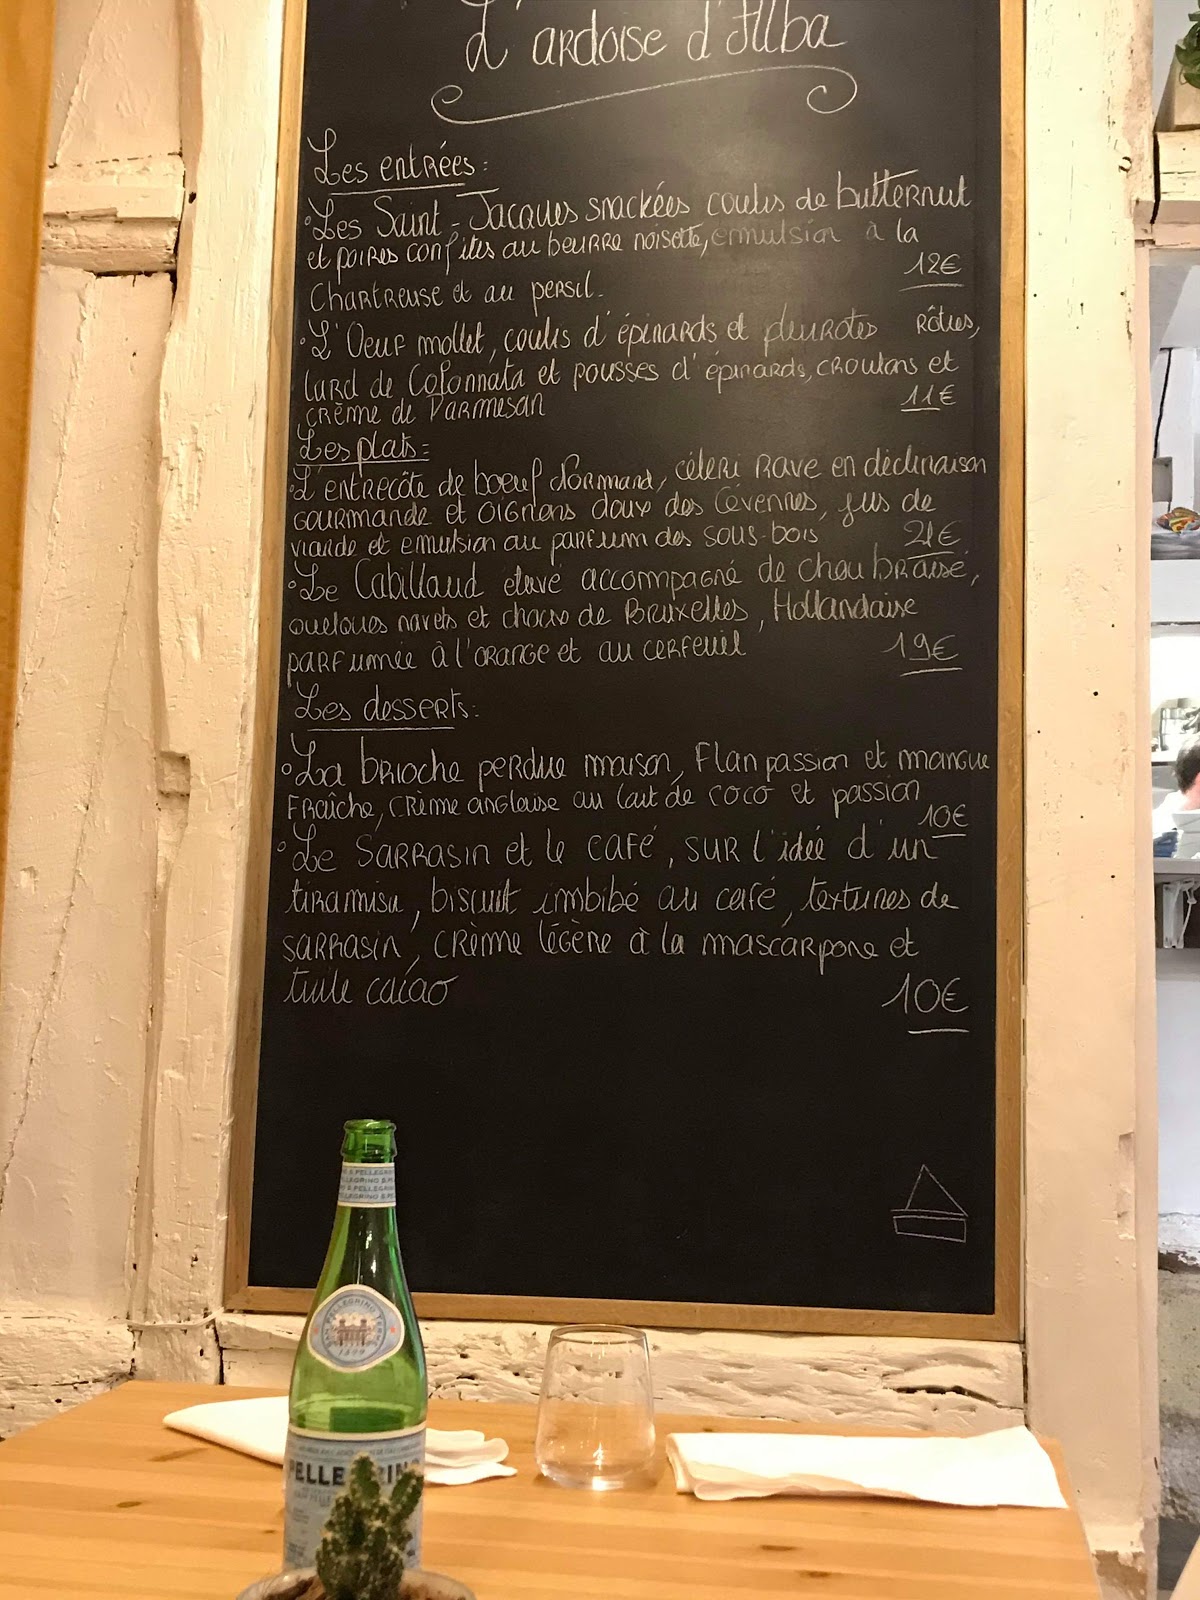 L'ardoise d'Alba
Les entrées:
• Les Saint-Jacques snackées coulis de butternut
et poires confites au beurre noisette, emulsion à la
12€
Chartreuse et au persil.
• L'Oeuf mollet, coulis d'épinards et pleurotes rôties,
lard de Colonnata et pousses d'épinards, croutons et
crème de Parmesan 11€
Les plats:
• L'entrecôte de boeuf Normand, céleri rave en déclinaison
gourmande et oignons doux des Cévennes, jus de
viande et emulsion au parfum des sous-bois 21€
• Le Cabillaud accompagné de chou braisé,
quelques navets et choux de Bruxelles, Hollandaise
parfumée à l'orange et au cerfeuil 19€
Les desserts:
• La brioche perdue maison, Flan passion et mangue
fraîche, crème anglaise au lait de coco et passion
10€
• Le Sarrasin et le café, sur l'idée d'un
tiramisu, biscuit imbibé au café, textures de
sarrasin, crème légère à la mascarpone et
tuile cacao 10€
S.PELLEGRINO
SAN PELLEGRINO TERME
1899
PELLEGRINO